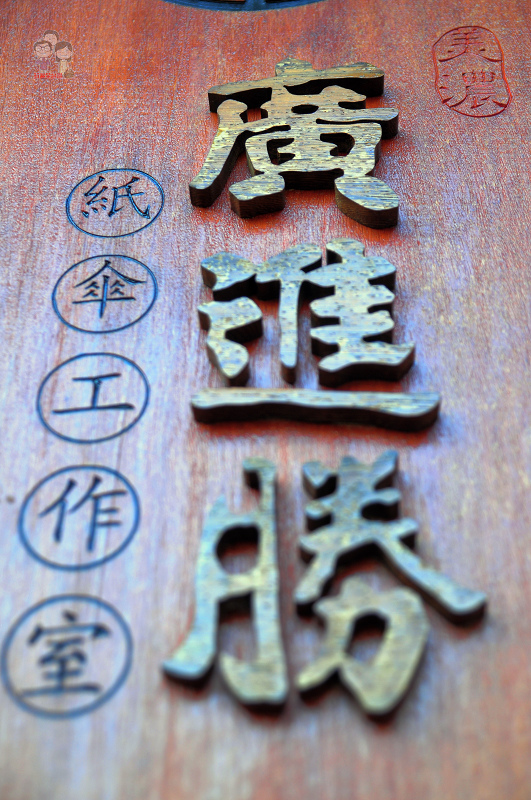 美濃
廣進勝
紙傘工作室